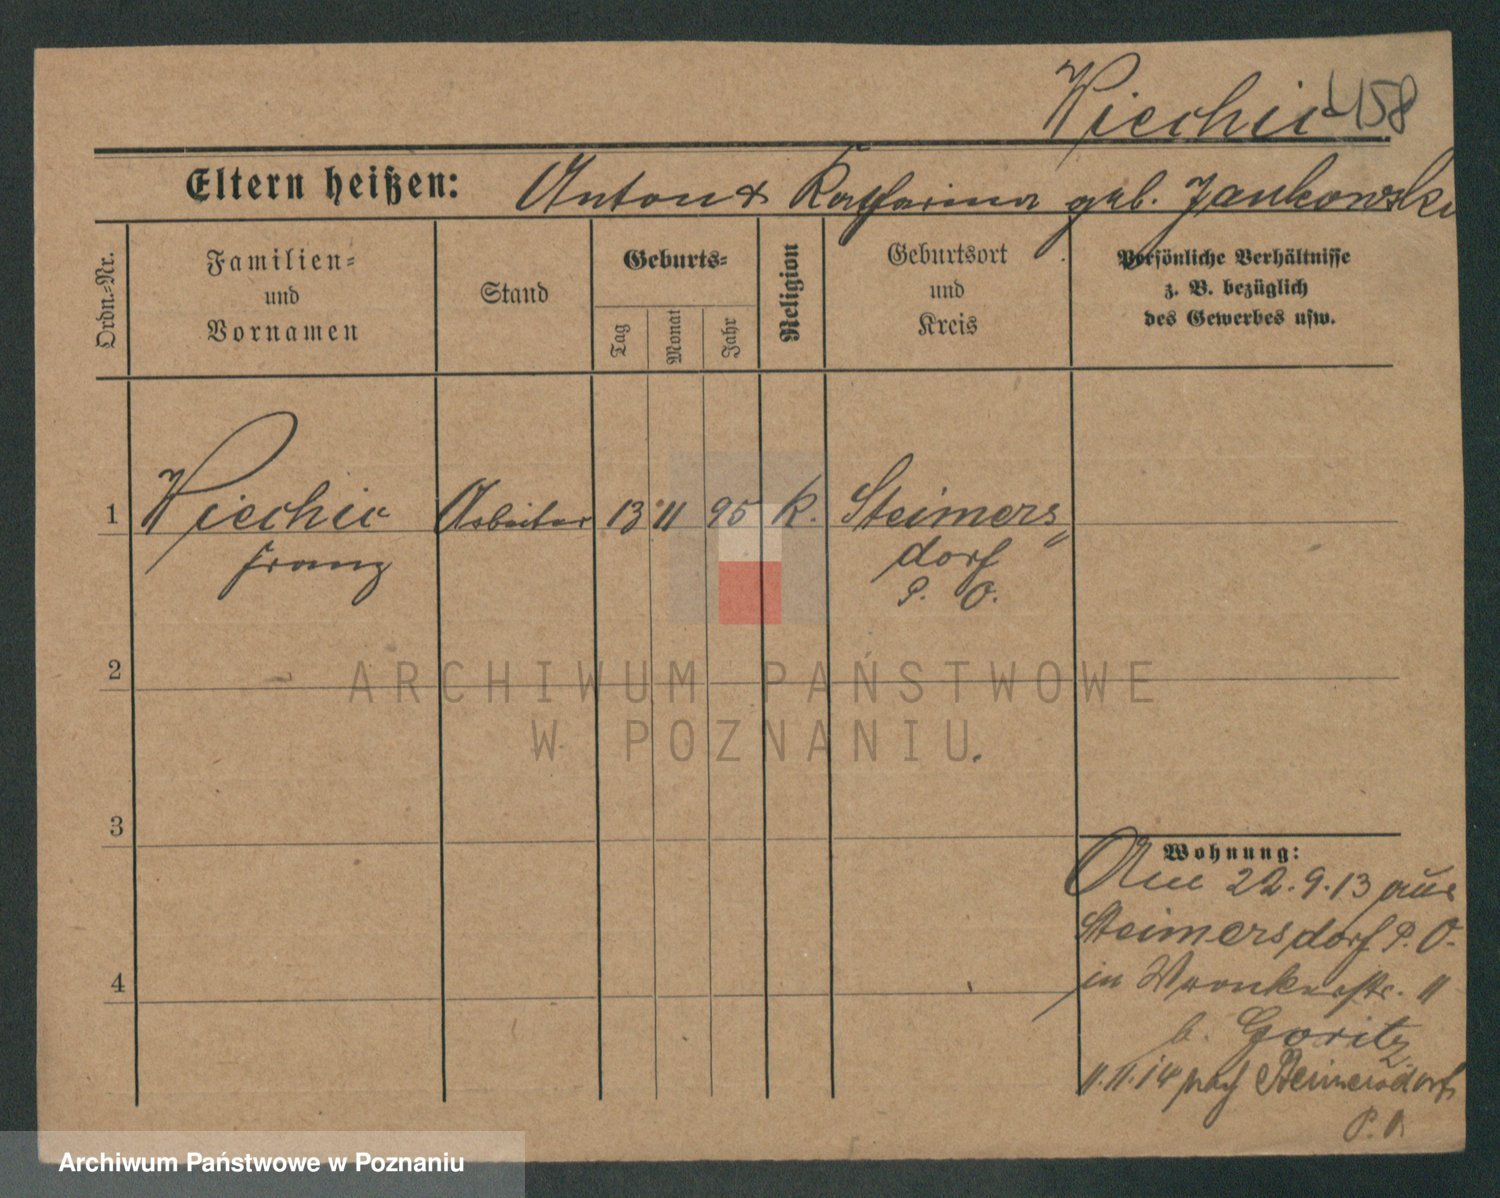 Wiechic
158
Eltern heißen: Anton & Katharina geb. Jankowski
Ordn.-Nr.
Familien-
und
Vornamen
Stand
Geburts-
Tag
Monat
Jahr
Religion
Geburtsort
und
Kreis
Persönliche Verhältnisse
z. B. bezüglich
des Gewerbes usw.
1 Wiechic Arbeiter 13 11 95 k. Steimers
Franz
dorf
P. O.
2
3
4
Wohnung:
Am 22.9.13 aus
Steimersdorf P. O.
in Wronkerstr. 11
b. Goritz
11.11.14 nach Steimersdorf
P. O.
ARCHIWUM PAŃSTWOWE
W POZNANIU
Archiwum Państwowe w Poznaniu